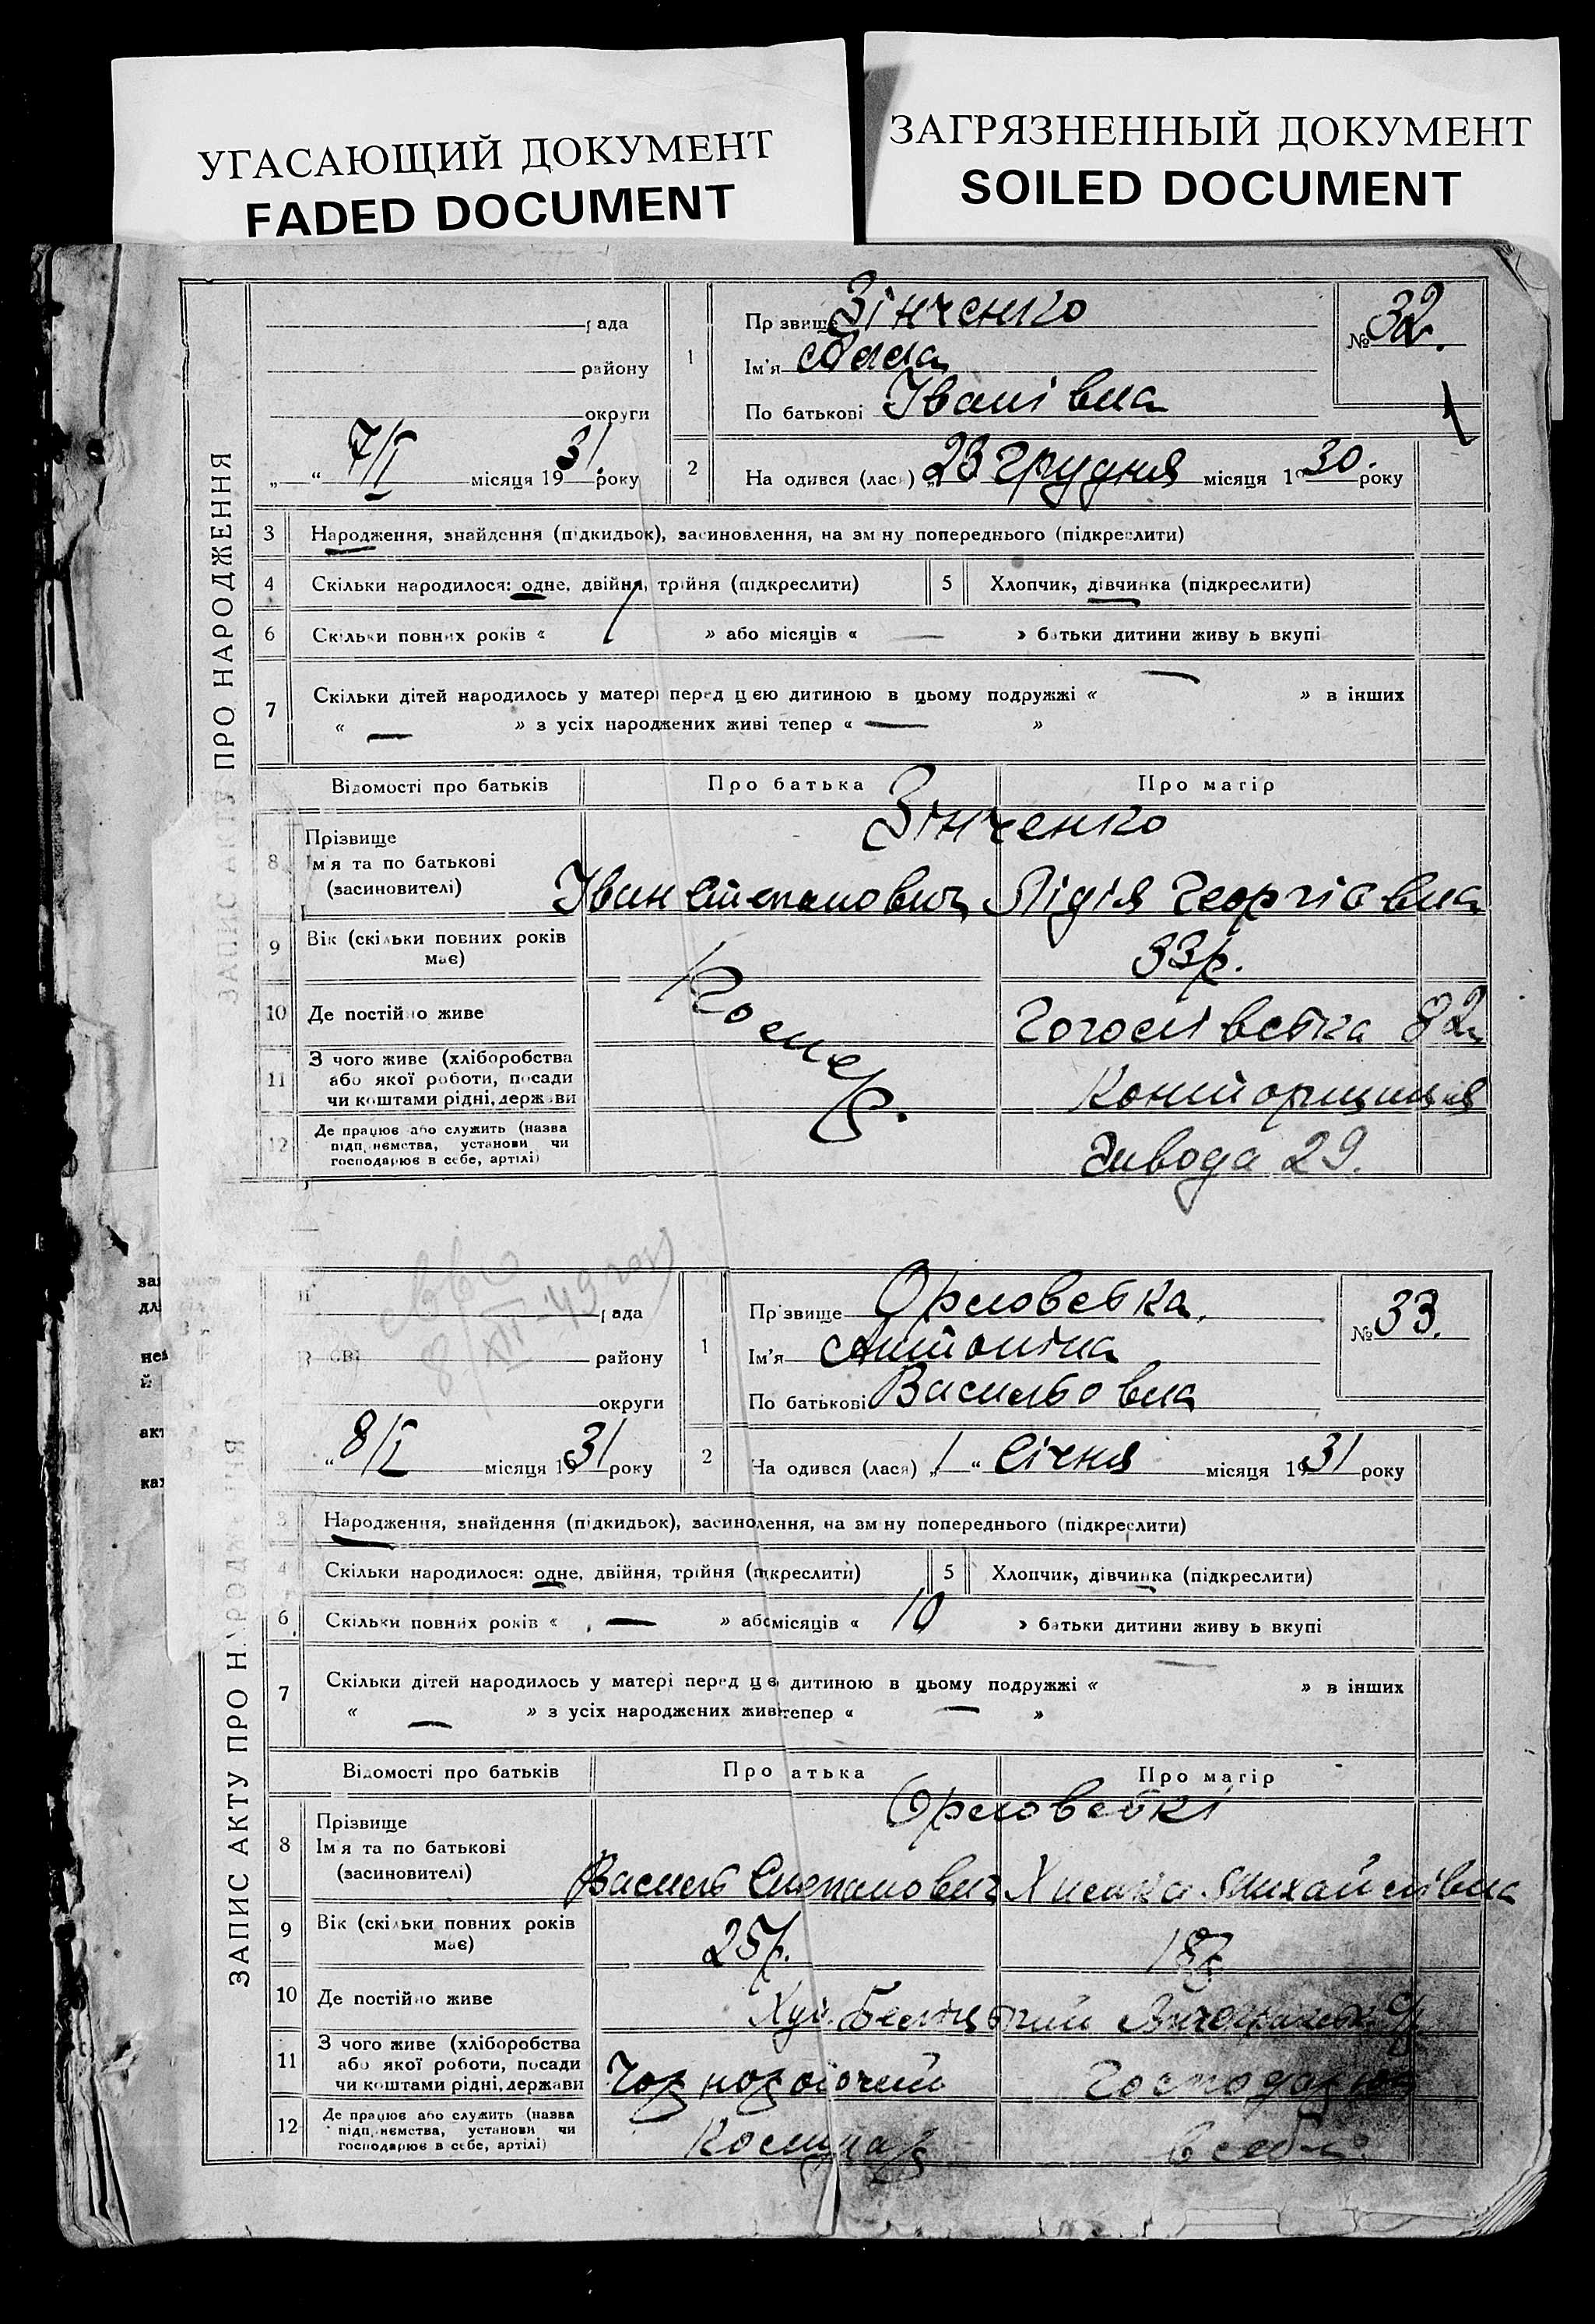 УГАСАЮЩИЙ ДОКУМЕНТ
FADED DOCUMENT
ЗАГРЯЗНЕННЫЙ ДОКУМЕНТ
SOILED DOCUMENT
ЗАПИС АКТУ ПРО НАРОДЖЕННЯ
рада
району
округи
„ “ 7/I місяця 1931. року
1
Прзвище Зінченко
Ім'я Алла
По батькові Іванівна
№ 32.
2
На одився (лась) „23 грудня місяця 1930. року
3 Народження, знайдення (підкидьок), засиновлення, на зм ну попереднього (підкреслити)
4 Скільки народилося: одне, двійня, трійня (підкреслити) 5 Хлопчик, дівчинка (підкреслити)
6 Скільки повних років « 1 » або місяців « — » батьки дитини живу ь вкупі
7 Скільки дітей народилось у матері перед цією дитиною в цьому подружжі « — » в інших
« — » з усіх народжених живі тепер « — »
Відомості про батьків Про батька Про матір
8 Прізвище
Ім'я та по батькові
(засиновителі)
Зінченко
Іван Степанович Лідія Георгіовна
9 Вік (скільки повних років має) 33 р.
10 Де постійно живе 82
11 З чого живе (хліборобства або якої роботи, посади чи коштами рідні, держави Конторщиця
12 Де працює або служить (назва підприємства, установи чи господарює в себе, артілі) Завода 29.
Помер.
8/XII-49
ЗАПИС АКТУ ПРО НАРОДЖЕННЯ
рада
району
округи
“ 8/I місяця 1931 року
1
Прзвище Орловська.
Ім'я Антоніна
По батькові Васильовна
№ 33.
2
На одився (лася) „1“ Січня місяця 1931 року
3 Народження, знайдення (підкидьок), засиновлення, на зм ну попереднього (підкреслити)
4 Скільки народилося: одне, двійня, трійня (підкреслити) 5 Хлопчик, дівчинка (підкреслити)
6 Скільки повних років « — » або місяців « 10 » батьки дитини живу ь вкупі
7 Скільки дітей народилось у матері перед цією дитиною в цьому подружжі « — » в інших
« — » з усіх народжених живі тепер « — »
Відомості про батьків Про батька Про матір
8 Прізвище
Ім'я та по батькові
(засиновителі)
Орловські
Василь Степанович Михайлівна
9 Вік (скільки повних років має) 25 р. 18 р.
10 Де постійно живе Хут.
11 З чого живе (хліборобства або якої роботи, посади чи коштами рідні, держави Чорноробочий Господарює
12 Де працює або служить (назва підприємства, установи чи господарює в себе, артілі) в себе.